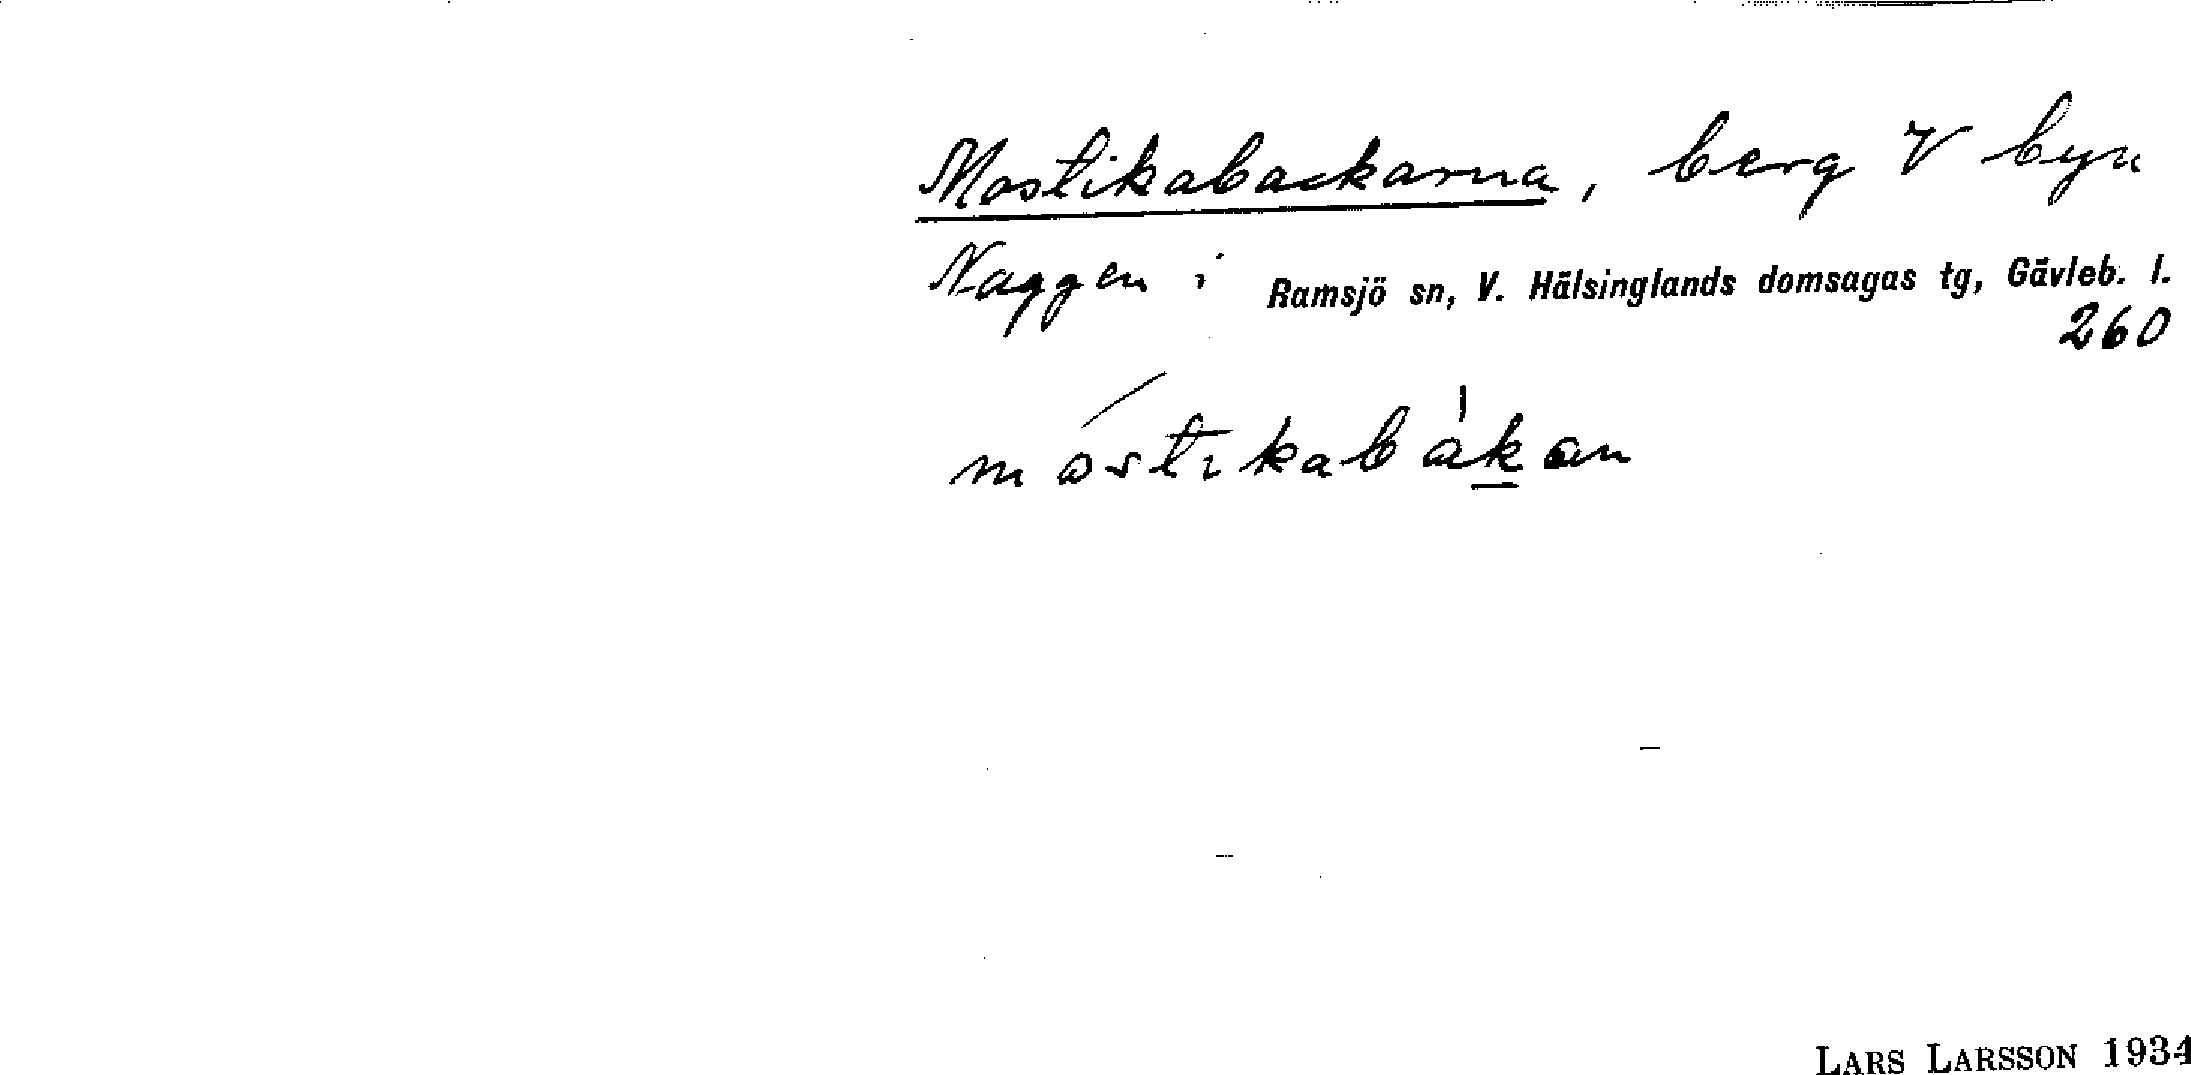 Mostikabackarna, berg V byn
Naggen i Ramsjö sn, V. Hälsinglands domsagas tg, Gävleb. l.
260
móstikabàkan
LARS LARSSON 1934